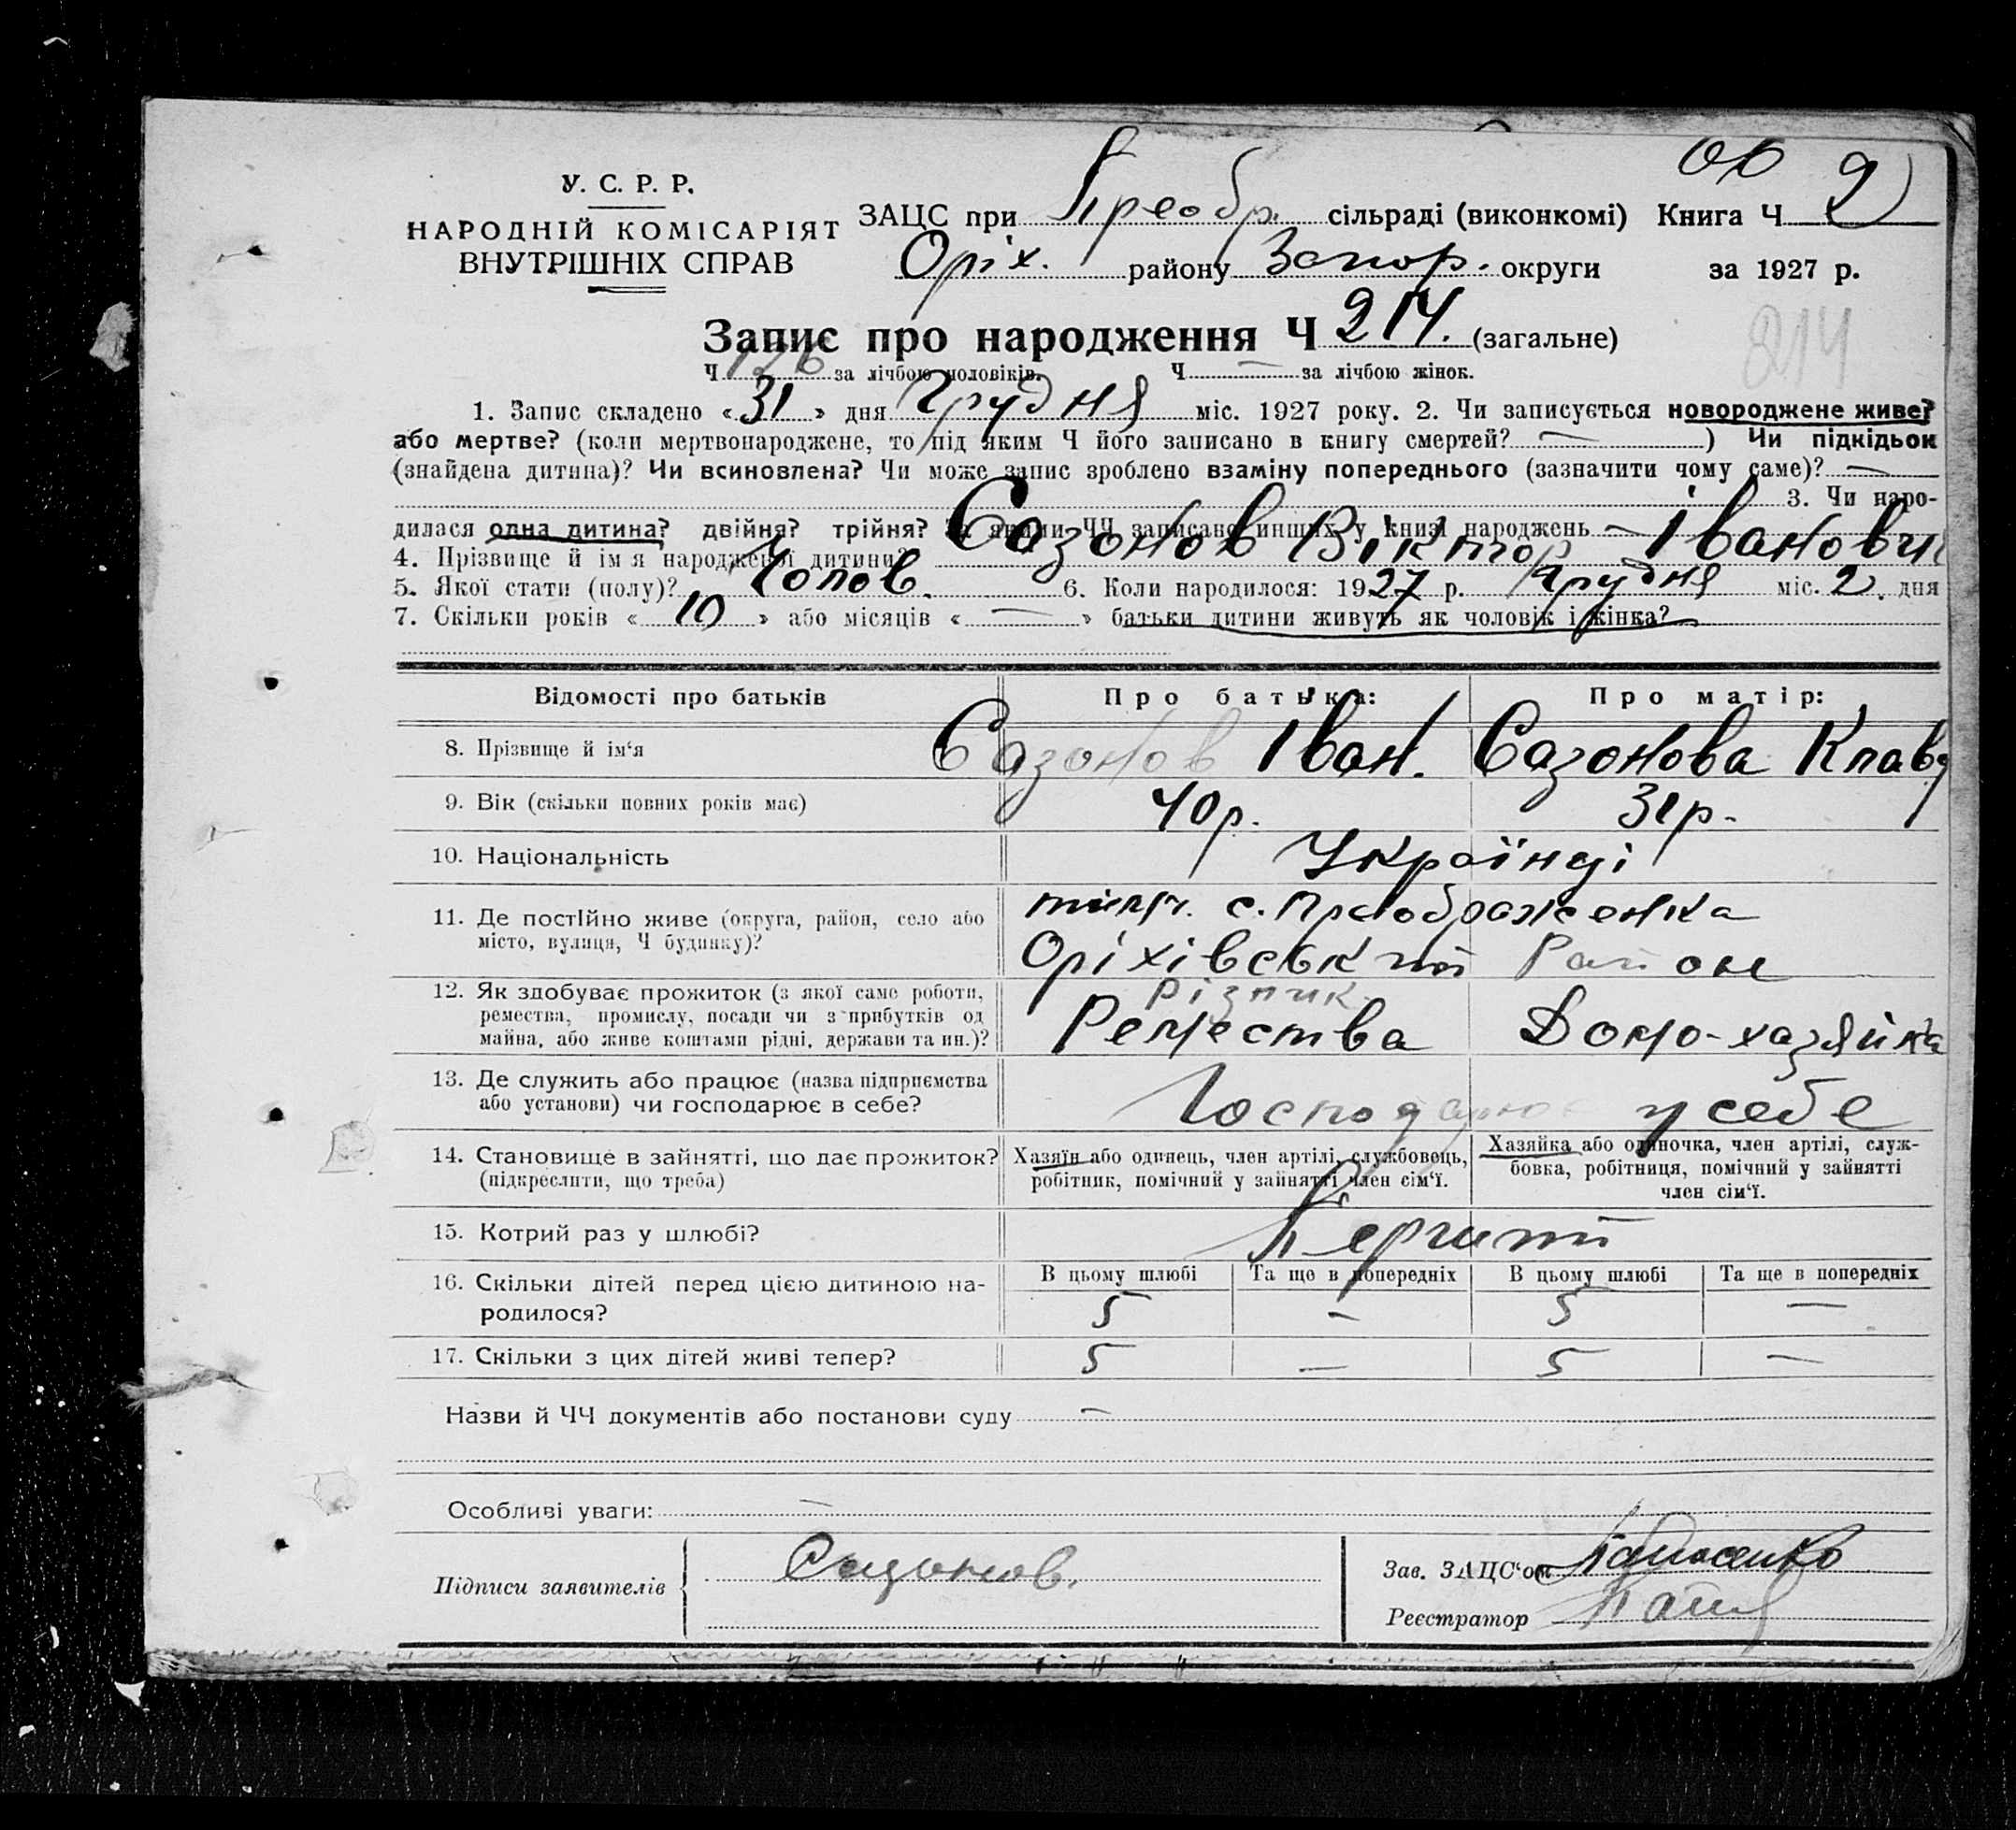 Об
У. С. Р. Р.
НАРОДНІЙ КОМІСАРІЯТ
ВНУТРІШНІХ СПРАВ
ЗАЦС при Преобр. сільраді (виконкомі) Книга Ч 2
Оріх. району Запор. округи за 1927 р.
Запис про народження Ч 214. (загальне)
214
Ч 126 за лічбою чоловіків. Ч — за лічбою жінок.
1. Запис складено «31» дня Грудня міс. 1927 року. 2. Чи записується новороджене живе?
або мертве? (коли мертвонароджене, то під яким Ч його записано в книгу смертей? —) Чи підкідьок
(знайдена дитина)? Чи всиновлена? Чи може запис зроблено взаміну попереднього (зазначити чому саме)? —
3. Чи наро-
дилася одна дитина? двійня? трійня? За якими ЧЧ записано инших у книзі народжень —
4. Прізвище й ім'я народженої дитини? Сазонов Віктор Іванович
5. Якої стати (полу)? Чолов. 6. Коли народилося: 1927 р. Грудня міс. 2. дня
7. Скільки років «10» або місяців «—» батьки дитини живуть як чоловік і жінка?
Відомості про батьків Про батька: Про матір:
8. Прізвище й ім'я Сазонов Іван. Сазонова Клавд
9. Вік (скільки повних років має) 40р. 31р.
10. Національність Українці
11. Де постійно живе (округа, район, село або
місто, вулиця, Ч будинку)?
с. Преображенка
Оріхівський Район
12. Як здобуває прожиток (з якої саме роботи,
ремества, промислу, посади чи з прибутків од
майна, або живе коштами рідні, держави та ин.)?
Різник.
Ремества Домо-хазяйка
13. Де служить або працює (назва підприємства
або установи) чи господарює в себе?
Господарює у себе
14. Становище в зайнятті, що дає прожиток?
(підкреслити, що треба)
Хазяїн або одинець, член артілі, службовець,
робітник, помічний у зайнятті член сім'ї.
Хазяйка або одиночка, член артілі, служ-
бовка, робітниця, помічний у зайнятті
член сім'ї.
15. Котрий раз у шлюбі? Перший
16. Скільки дітей перед цією дитиною на-
родилося?
В цьому шлюбі Та ще в попередніх В цьому шлюбі Та ще в попередніх
5 — 5 —
17. Скільки з цих дітей живі тепер? 5 — 5 —
Назви й ЧЧ документів або постанови суду —
Особливі уваги: —
Підписи заявителів Сазонов.
Зав. ЗАЦС'ом
Реєстратор